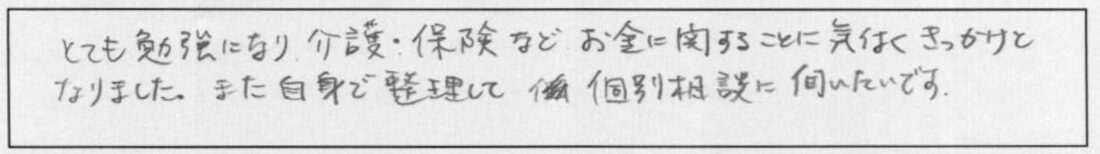 とても勉強になり、介護・保険など お金に関することに気付くきっかけと
なりました。また自身で整理して 個別相談に伺いたいです。